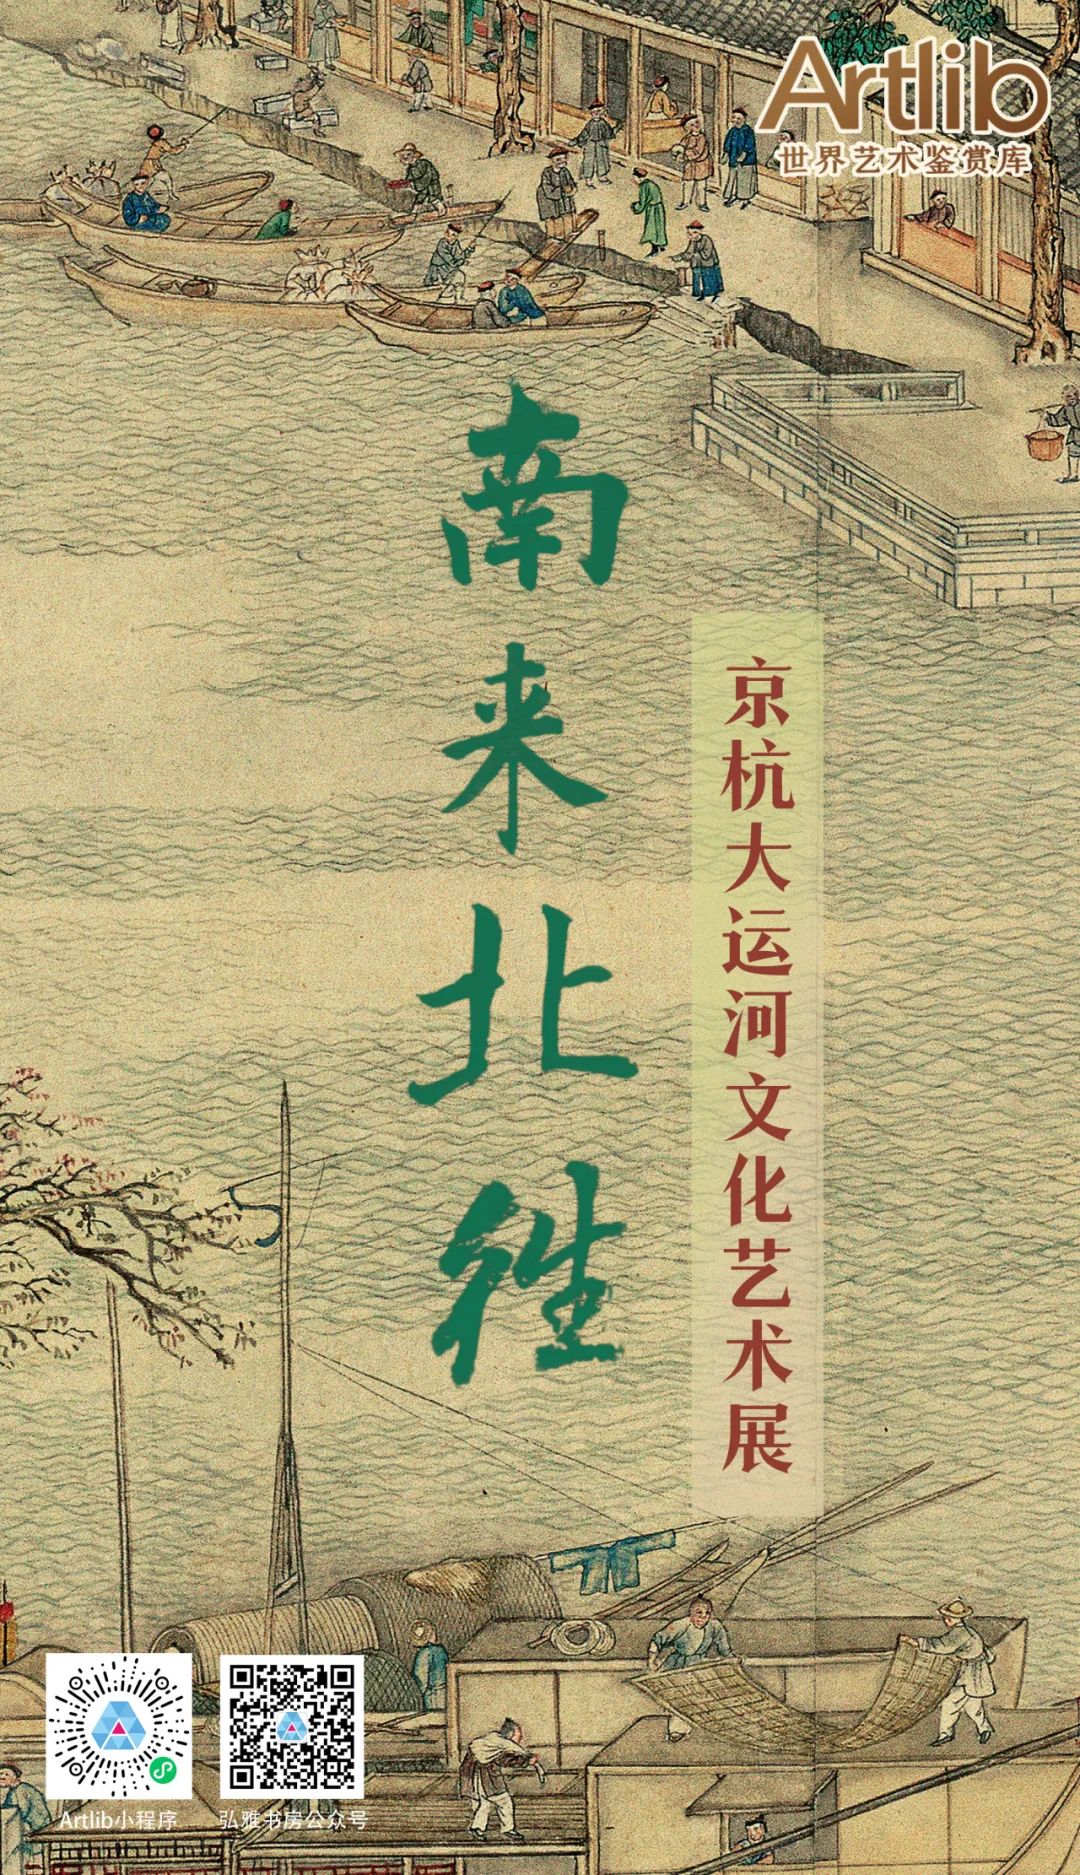 Artlib
世界艺术鉴赏库
南来北往
京杭大运河文化艺术展
Artlib小程序
弘雅书房公众号